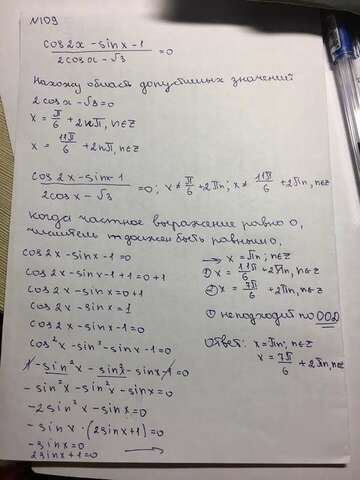 №109
cos2x - sinx - 1
2cosx - √3 = 0
Нахожу область допустимых значений
2cosx - √3 = 0
x = π/6 + 2πn, n∈Z
x = 11π/6 + 2πn, n∈Z
cos2x - sinx - 1
2cosx - √3 = 0; x ≠ π/6 + 2πn; x ≠ 11π/6 + 2πn, n∈Z
Когда частное выражение равно 0,
числитель должен быть равным 0.
cos2x - sinx - 1 = 0
cos2x - sinx - 1 + 1 = 0 + 1
cos2x - sinx = 0 + 1
cos2x - sinx = 1
cos2x - sinx - 1 = 0
cos²x - sin²x - sinx - 1 = 0
1 - sin²x - sin²x - sinx - 1 = 0
- sin²x - sin²x - sinx = 0
-2sin²x - sinx = 0
- sinx · (2sinx + 1) = 0
- sinx = 0
2sinx + 1 = 0 →
→ x = πn; n∈Z
① x = 11π/6 + 2πn, n∈Z
② x = 7π/6 + 2πn, n∈Z
① не подходит по ООД
Ответ: x = πn; n∈Z
x = 7π/6 + 2πn, n∈Z